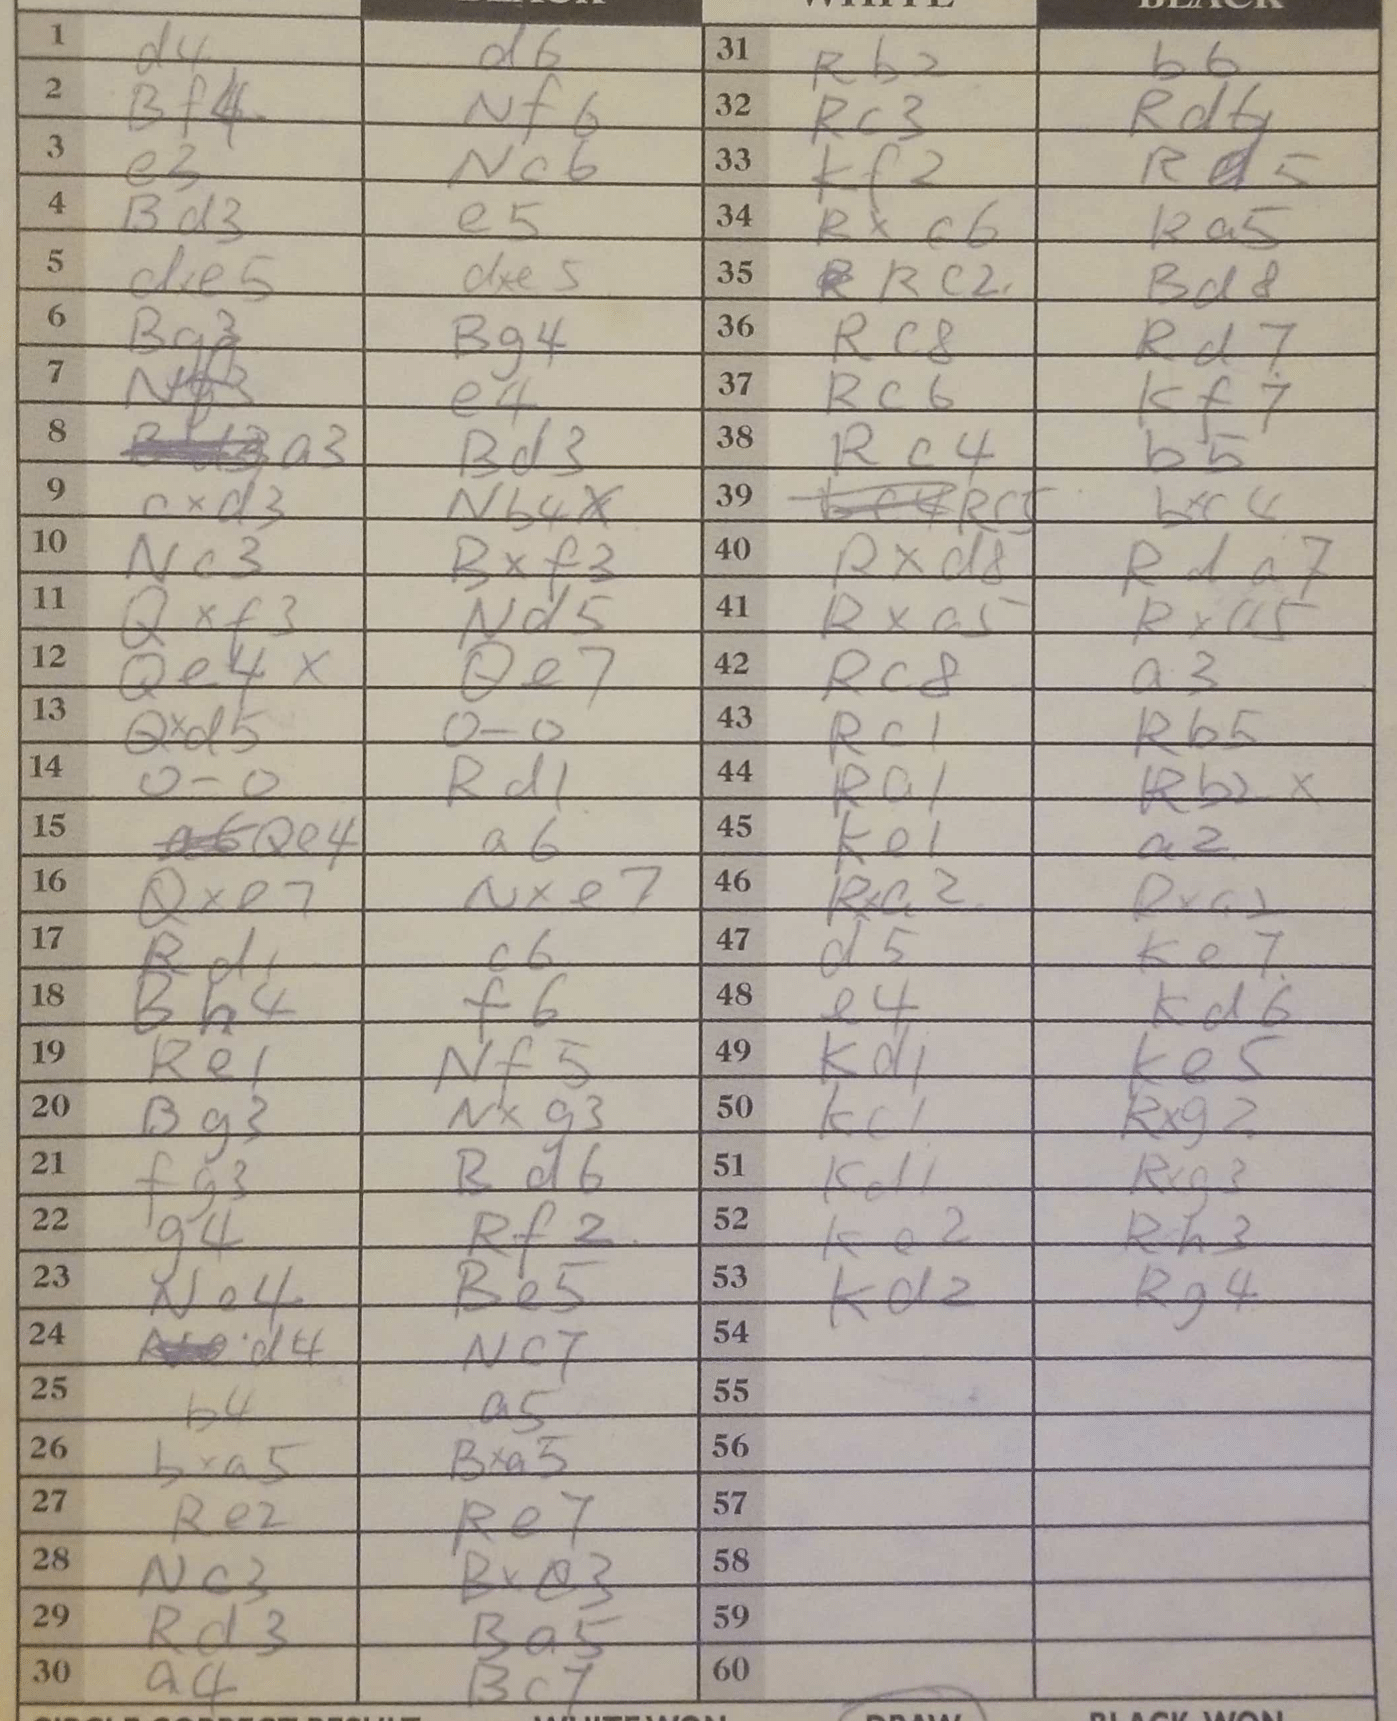 BLACK WHITE BLACK
1 d4 d6 31 Rb2 b6
2 Bf4 Nf6 32 Rc3
3 e3 Nc6 33 Kf2 Rd5
4 Bd3 e5 34 Rxc6 Ra5
5 dxe5 dxe5 35 Rc2. Bd8
6 Bg3 Bg4 36 Rc8 Rd7
7 Nf3 e4 37 Rc6 Kf7
8 a3 Bd3 38 Rc4 b5
9 cxd3 Nb4x 39 Rc5 bxc4
10 Nc3 Bxf3 40 Rxd8 Rda7
11 Qxf3 Nd5 41 Rxa5 Rxa5
12 Qe4x Qe7 42 Rc8 a3
13 Qxd5 0-0 43 Rc1 Rb5
14 0-0 Rd1 44 Ra1 Rb2x
15 Qe4 a6 45 Ke1 a2
16 Qxe7 Nxe7 46 Rxa2. Rxa2
17 Rd1 c6 47 d5 Ke7
18 Bh4 f6 48 e4 Kd6
19 Re1 Nf5 49 Kd1 Ke5
20 Bg3 Nxg3 50 Kc1 Rxg2
21 fg3 Bd6 51 Kd1 Rxg3
22 g4 Rf2. 52 Ke2 Rh3
23 Ne4 Be5 53 Kd2 Rg4
24 d4 Nc7 54
25 b4 a5 55
26 bxa5 Bxa5 56
27 Re2 Re7 57
28 Nc3 58
29 Rd3 Ba5 59
30 a4 Bc7 60
CIRCLE CORRECT RESULT WHITE WON DRAW BLACK WON